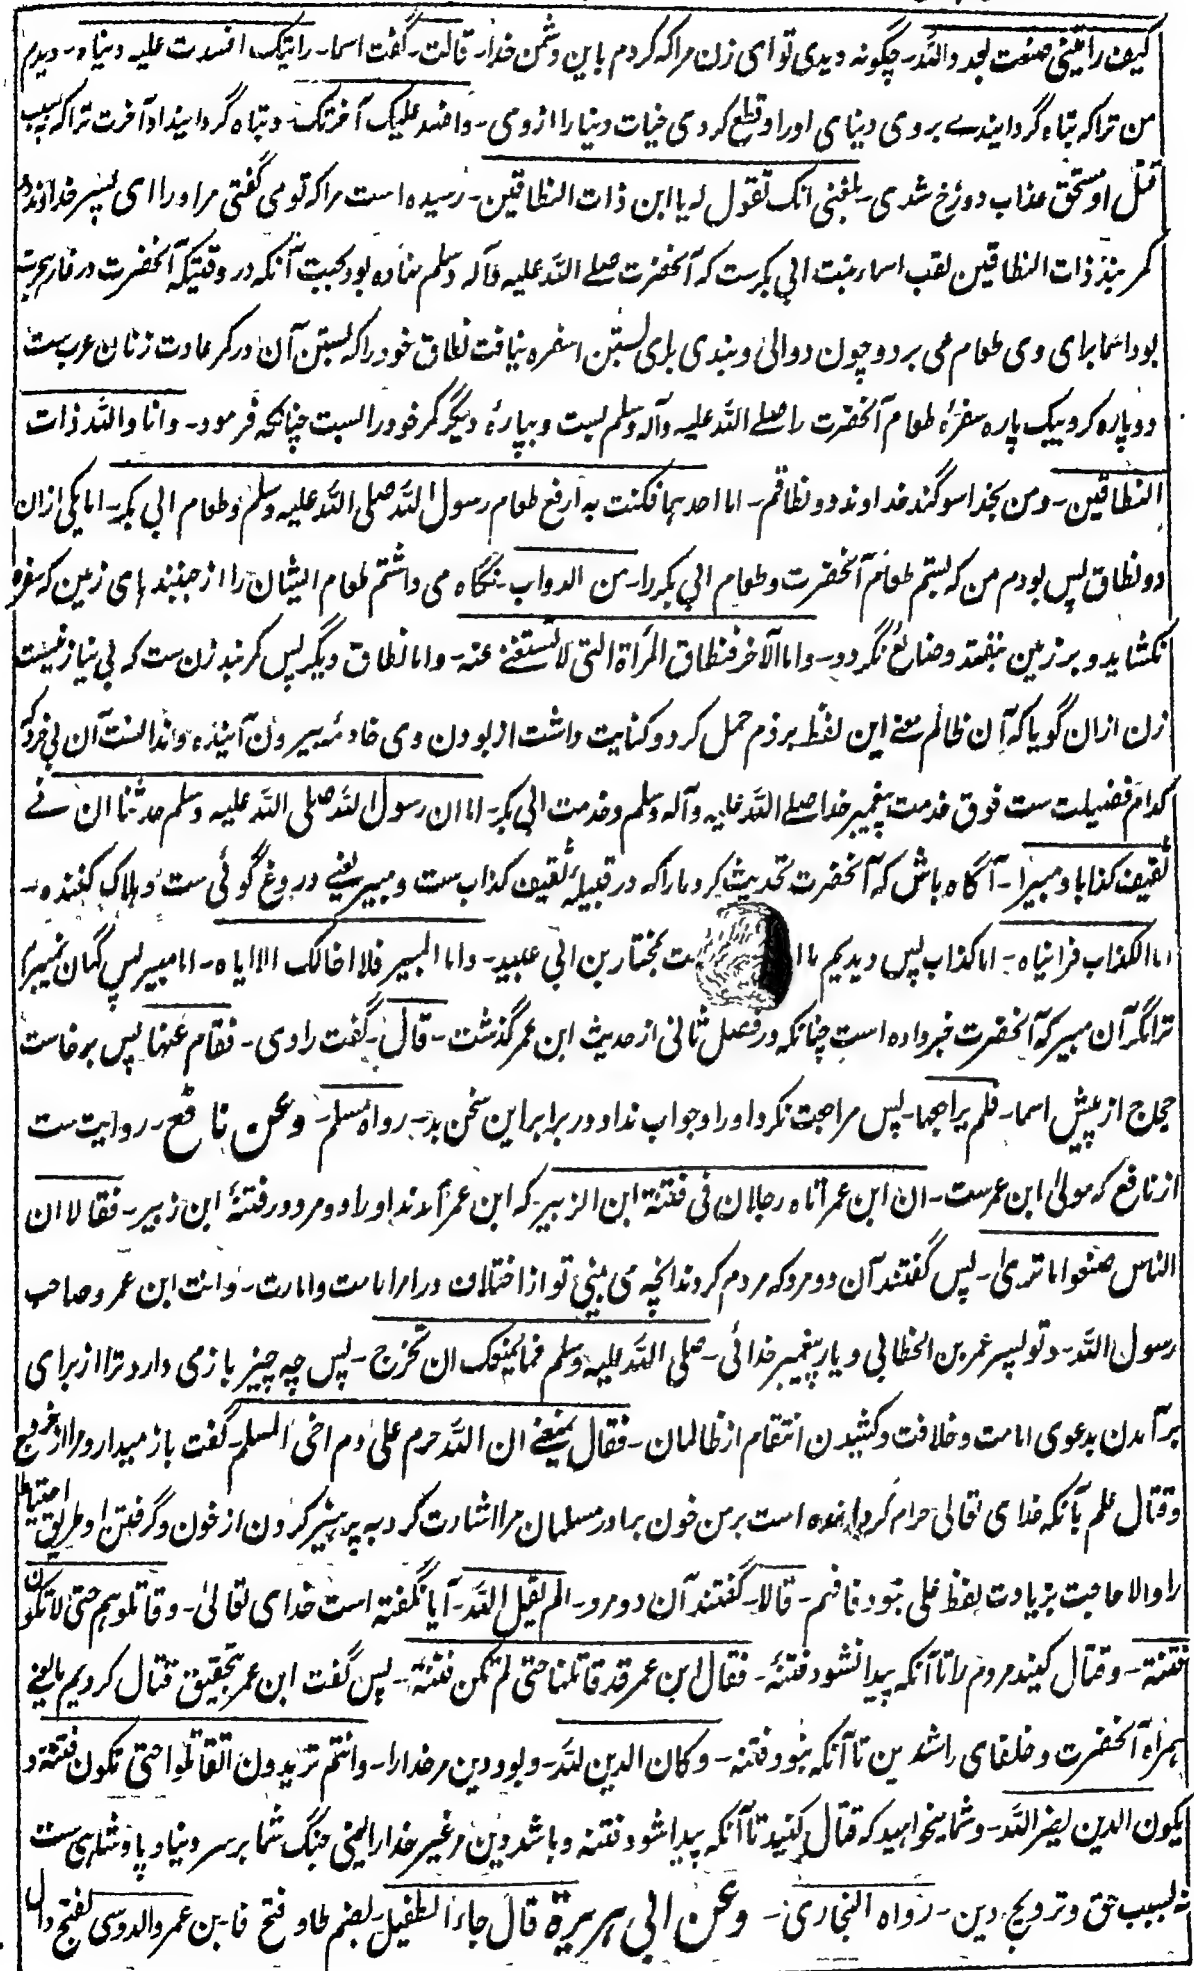 کیف رأیتنی صنعت بعدو اللّٰه ـ چگونه دیدی تو ای زن مرا که کردم باین دشمن خدا ـ قالت ـ گفت اسما ـ رأیتک افسدت علیه دنیاه ـ دیدم
من ترا که تباه گردانیدے بر وی دنیای او را و قطع کردی حیات دنیا را از وی ـ و افسد علیک آخرتک ـ و تباه گردانید او آخرت ترا که بسبب
قتل او مستحق عذاب دوزخ شدی ـ بلغنی انک تقول له یا ابن ذات النطاقین ـ رسیده است مرا که تو می گفتی مر او را ای پسر خداوند دو
کمر بند ذات النطاقین لقب اسما بنت ابی بکرست که آنحضرت صلے اللّٰه علیه وآله وسلم نهاده بود بجهت آنکه در وقتیکه آنحضرت در غار هجرت
بود اسما برای وی طعام می برد و چون دوالی و بندی برای بستن سفره نیافت نطاق خود را که بستن آن در کمر عادت زنان عرب ست
دو پاره کرد و بیک پاره سفرهٔ طعام آنحضرت را صلے اللّٰه علیه وآله وسلم بست و بپارهٔ دیگر کمر خود را بست چنانکه فرمود ـ و انا واللّٰه ذات
النطاقین ـ و من بخدا سوگند خداوند دو نطاقم ـ اما احدهما فکنت به ارفع طعام رسول اللّٰه صلی اللّٰه علیه وسلم و طعام ابی بکر ـ اما یکی ازان
دو نطاق پس بودم من که بستم طعام آنحضرت و طعام ابی بکر را ـ من الدواب ـ نگاه می داشتم طعام ایشان را از جنبند های زمین که سفره
نکشاید و بر زمین نیفتد و ضایع نگردد ـ و اما الآخر فنطاق المرأة التی لا تستغنے عنه ـ و اما نطاق دیگر پس کمر بند زن ست که بی نیاز نیست
زن ازان گویا که آن ظالم معنے این لفظ بر ذم حمل کرد و کنایت داشت از بودن وی خادمهٔ بیرون آینده و ندانست آن بی خرد که
کدام فضیلت ست فوق خدمت پیغمبر خدا صلے اللّٰه علیه وآله وسلم و خدمت ابی بکر ـ اما ان رسول اللّٰه صلی اللّٰه علیه وسلم حدثنا ان فے
ثقیف کذابا و مبیرا ـ آگاه باش که آنحضرت تحدیث کرد ما را که در قبیلهٔ ثقیف کذاب ست و مبیر یعنے دروغ گوئی ست و هلاک کننده ـ
اما الکذاب فرأیناه ـ اما کذاب پس دیدیم ما ست بختار بن ابی عبید ـ و اما المبیر فلا اخالک الا ایاه ـ اما مبیر پس گمان نمیبرم
ترا مگر آن مبیر که آنحضرت خبر داده است چنانکه در فصل ثانی از حدیث ابن عمر گذشت ـ قال ـ گفت راوی ـ فقام عنها پس برخاست
حجاج از پیش اسما ـ فلم یراجعها ـ پس مراجعت نکرد او را و جواب نداد در برابر این سخن بد ـ رواه مسلم ـ وعن نافع ـ روایت ست
از نافع که مولیٰ ابن عمرست ـ ان ابن عمر اتاه رجلان فی فتنة ابن الزبیر ـ که ابن عمر آمدند او را دو مرد در فتنهٔ ابن زبیر ـ فقالا ان
الناس صنعوا ما تریٰ ـ پس گفتند آن دو مرد که مردم کردند آنچه می بینی تو از اختلاف در امر امامت و امارت ـ و انت ابن عمر و صاحب
رسول اللّٰه ـ و تو پسر عمر بن الخطابی و یار پیغمبر خدائی ـ صلی اللّٰه علیه وسلم فما یمنعک ان تخرج ـ پس چه چیز باز می دارد ترا از برای
بر آمدن بدعوی امامت و خلافت و کشیدن انتقام از ظالمان ـ فقال یمنعنے ان اللّٰه حرم علیٰ دم اخی المسلم ـ گفت باز میدارد مرا از خروج
و قتال علم بآنکه خدای تعالی حرام گردانیده است بر من خون برادر مسلمان مرا اشارت کرد به پرهیز کردن از خون و گرفتن او طریق احتیاط
را و الا حاجت بزیادت لفظ علی نبود فافهم ـ قالا ـ گفتند آن دو مرد ـ الم یقل اللّٰه ـ آیا نگفته است خدای تعالیٰ ـ و قاتلوهم حتی لا تکون
فتنة ـ و قتال کنید مردم را تا آنکه پیدا نشود فتنهٔ ـ فقال ابن عمر قد قاتلنا حتی لم تکن فتنة ـ پس گفت ابن عمر بتحقیق قتال کردیم ما یعنے
همراه آنحضرت و خلفای راشدین تا آنکه نبود فتنه ـ و کان الدین للّٰه ـ و بود دین مر خدا را ـ و انتم تریدون ان تقاتلوا حتی تکون فتنة و
یکون الدین لغیر اللّٰه ـ و شما میخواهید که قتال کنید تا آنکه پیدا شود فتنه و باشد دین مر غیر خدا را یعنی جنگ شما بر سر دنیا و پادشاهی ست
نه بسبب حق و ترویج دین ـ رواه البخاری ـ وعن ابی هریرة قال جاء الطفیل ـ بضم طا و فتح فا بن عمرو الدوسی بفتح دال